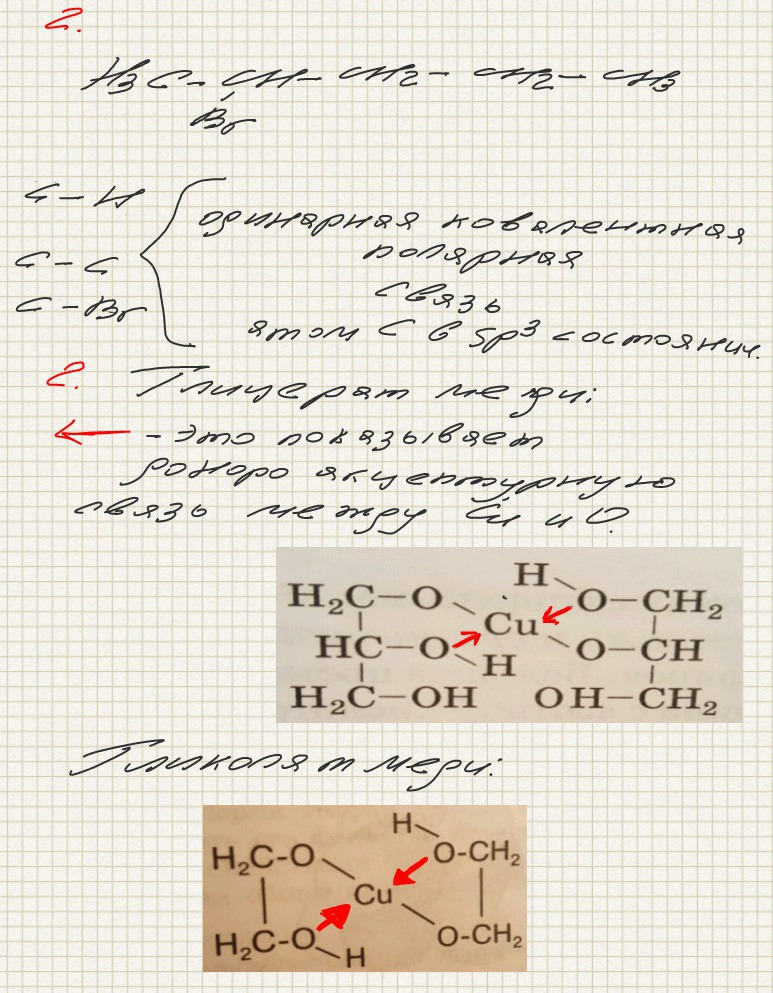 2.
H3C-CH-CH2-CH2-CH3
Br
C-H
одинарная ковалентная
полярная
C-C
связь
C-Br
атом С в sp³ состоянии.
2. Глицерат меди:
← - это показывает
донорно акцептурную
связь между Cu и O
H
H₂C-O O-CH₂
Cu
HC-O O-CH
H
H₂C-OH OH-CH₂
Гликолят меди:
H
H₂C-O O-CH₂
Cu
H₂C-O O-CH₂
H